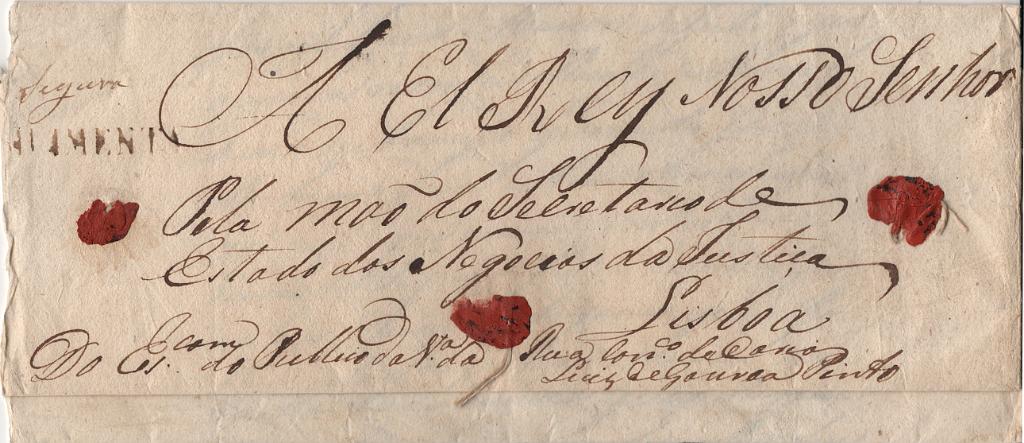 Segura
A El Rey Nosso Senhor
Pela mão do Secretario de
Estado dos Negocios da Justiça
Lisboa
Do Es.cam do Publico da V.a da
Luiz de Gouvea Pinto